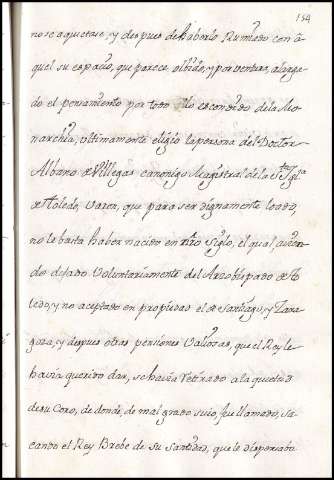 154
no se aquietase, y despues de haberlo Rumiado con a-
quel su espacio, que parece olbido, y por ventura, alarga-
do el pensamiento por todo lo escondido de la Mo-
narchia, ultimamente eligió la persona del Doctor
Albano de Villegas canonigo Magistral de la Sta Igla
de Toledo, Varon, que para ser dignamente loado,
no le basta haber nacido en nro siglo, el qual avien-
do dejado Voluntariamente del Arzobispado de To-
ledo, y no aceptado en propiedad el de Santiago, y Zara-
goza, y despues otras pensiones Valiosas, que el Rey le
havia querido dar, se havia retirado a la quietud
de su Coro, de donde, de mal grado suio fue llamado, sa-
cando el Rey Brebe de su Santidad, que le dispensaba